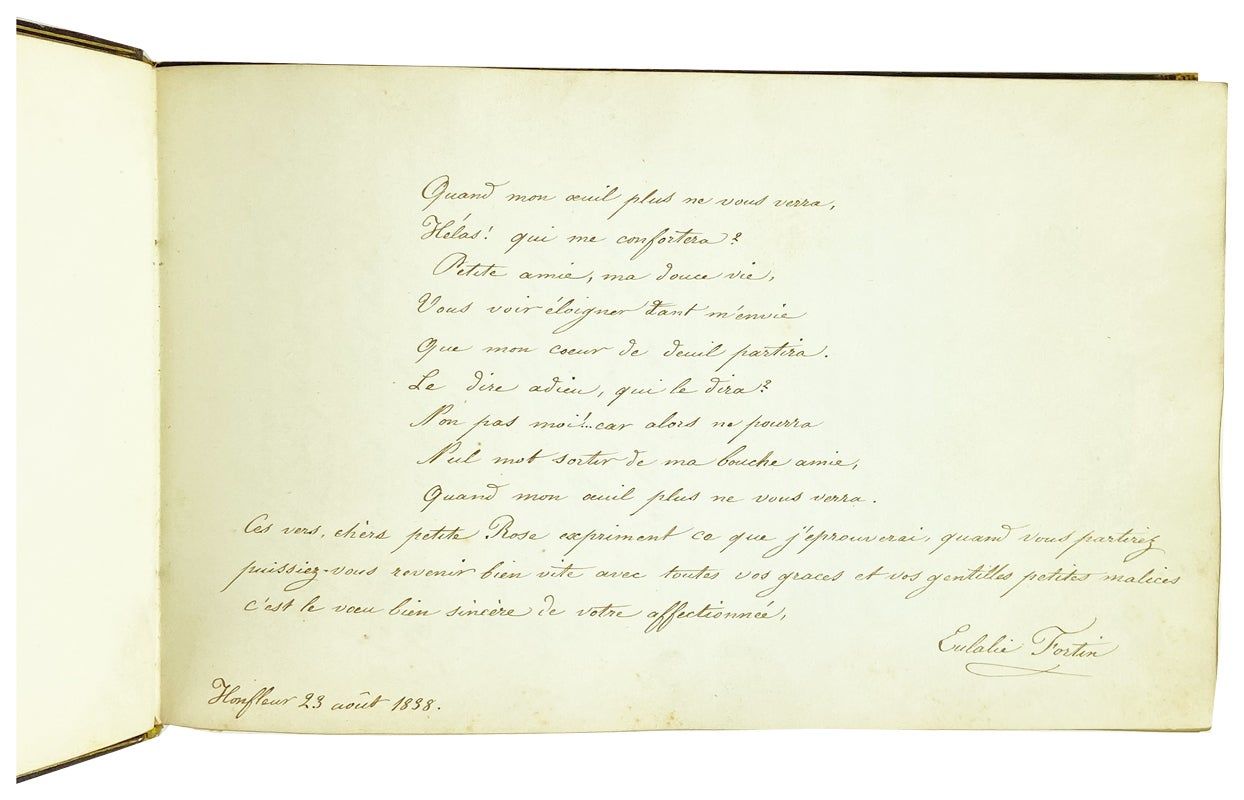 Quand mon œuil plus ne vous verra,
Hélas! qui me confortera?
Petite amie, ma douce vie,
Vous voir éloigner tant m'envie
Que mon coeur de deuil partira.
Le dire adieu, qui le dira?
Non pas moi!... car alors ne pourra
Nul mot sortir de ma bouche amie,
Quand mon œuil plus ne vous verra.
Ces vers, chère petite Rose expriment ce que j'éprouverai, quand vous partirez
puissiez-vous revenir bien vite avec toutes vos graces et vos gentilles petites malices
c'est le vœu bien sincère de votre affectionnée,
Eulalie Fortin
Honfleur 23 août 1838.